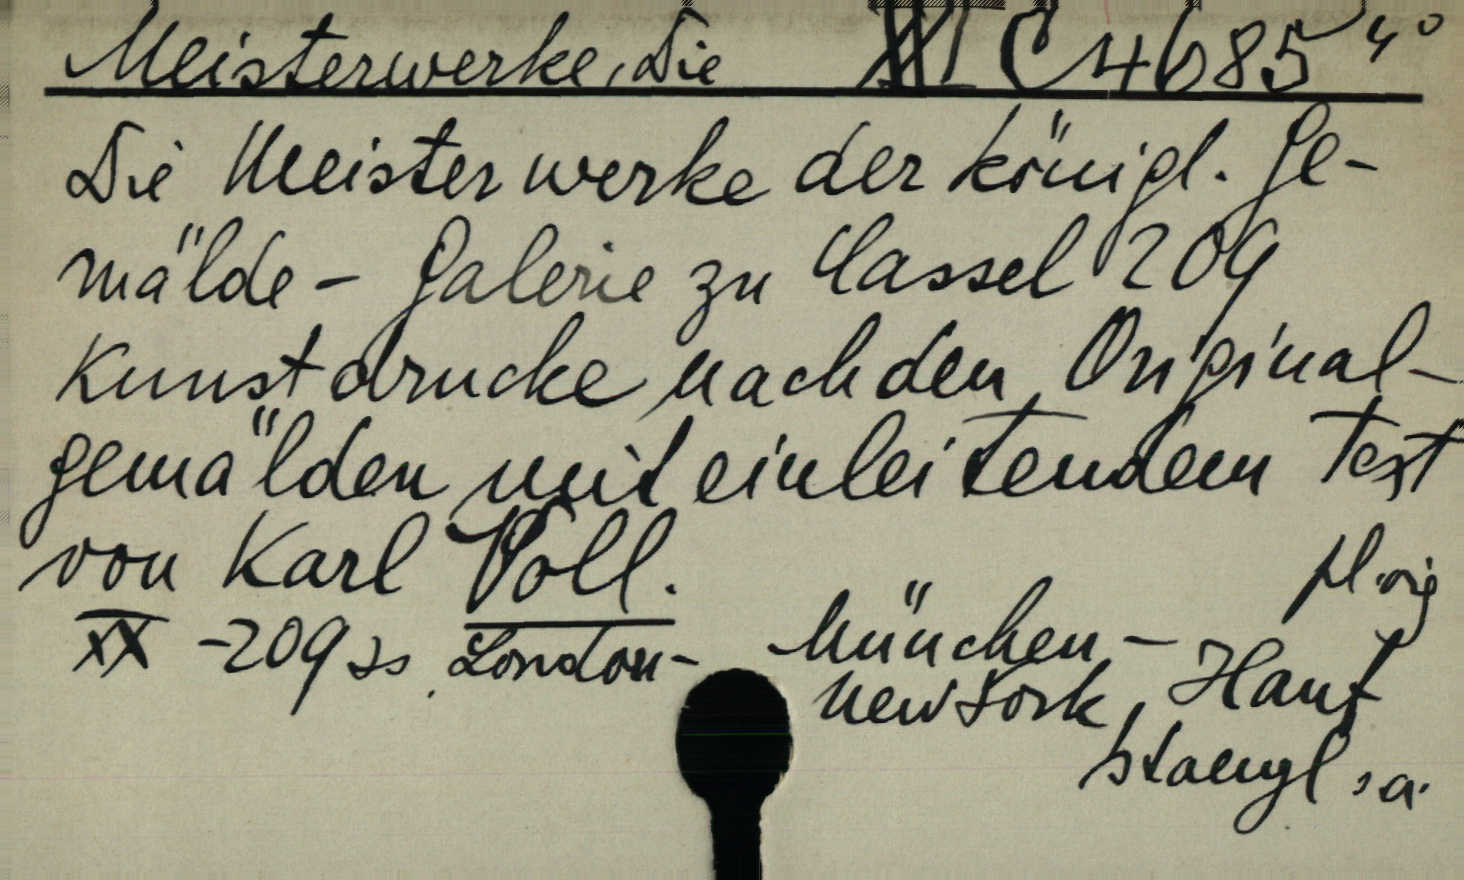 Meisterwerke, Die C 4685 4°
Die Meisterwerke der königl. Ge-
mälde- Galerie zu Cassel 209
Kunstdrucke nach den Original-
gemälden mit einleitendem Text
von Karl Voll.
pl. orig
XX -209 ss London- München-
New York, Hanf
staengl, a.